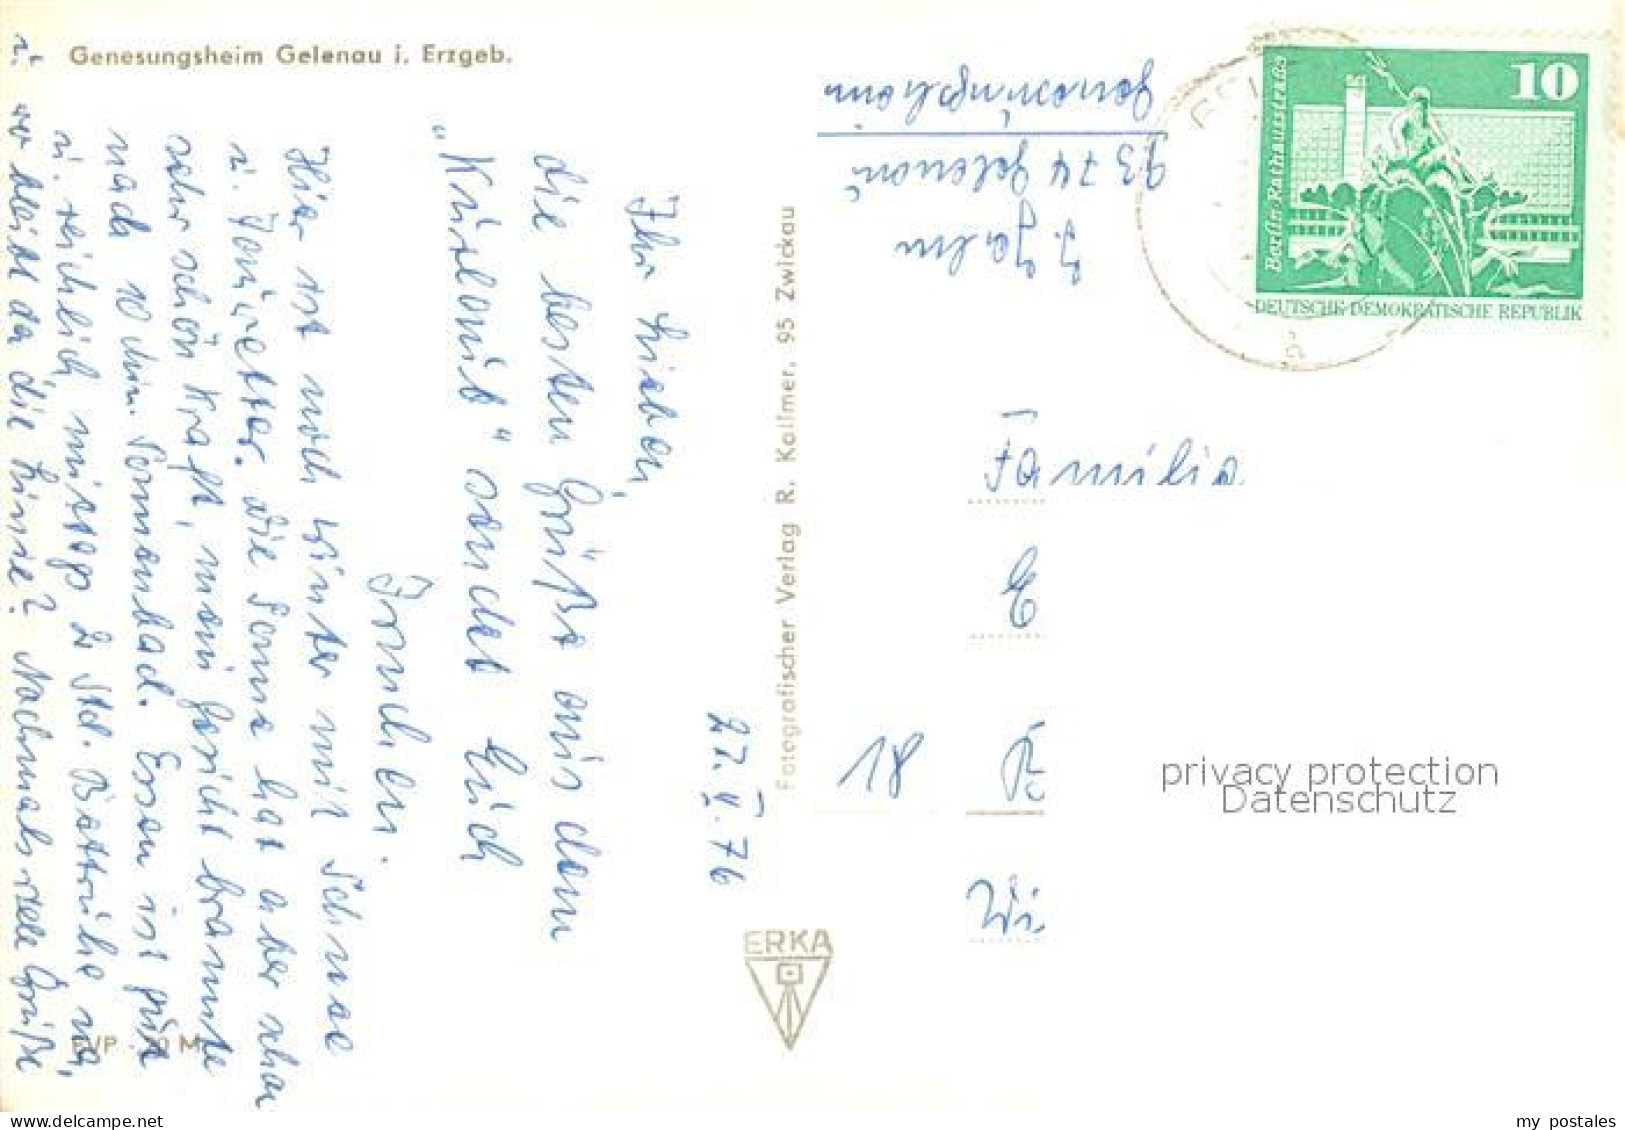 Genesungsheim Gelenau i. Erzgeb.
27. II. 76
Ihr Lieben,
die besten Grüße aus dem
"Kurlaub" sendet Euch
Hier ist noch Winter mit Schnee
u. Die Sonne hat aber schon
sehr schön Kraft, mein Gesicht brannte
nach 10 Min. Sonnenbad. Essen ist gut
u. reichlich, mittags 2 Std. Bettruhe na,
wo bleibt da die Linie? Nochmals viele Grüße
Fotografischer Verlag R. Kallmer, 95 Zwickau
ERKA
EVP
M
Genesungsheim
9374 Gelenau
10
Berlin, Rathausstraße
DEUTSCHE DEMOKRATISCHE REPUBLIK
Familie
E
18
Wi
privacy protection
Datenschutz
delcampe.net
my_postales